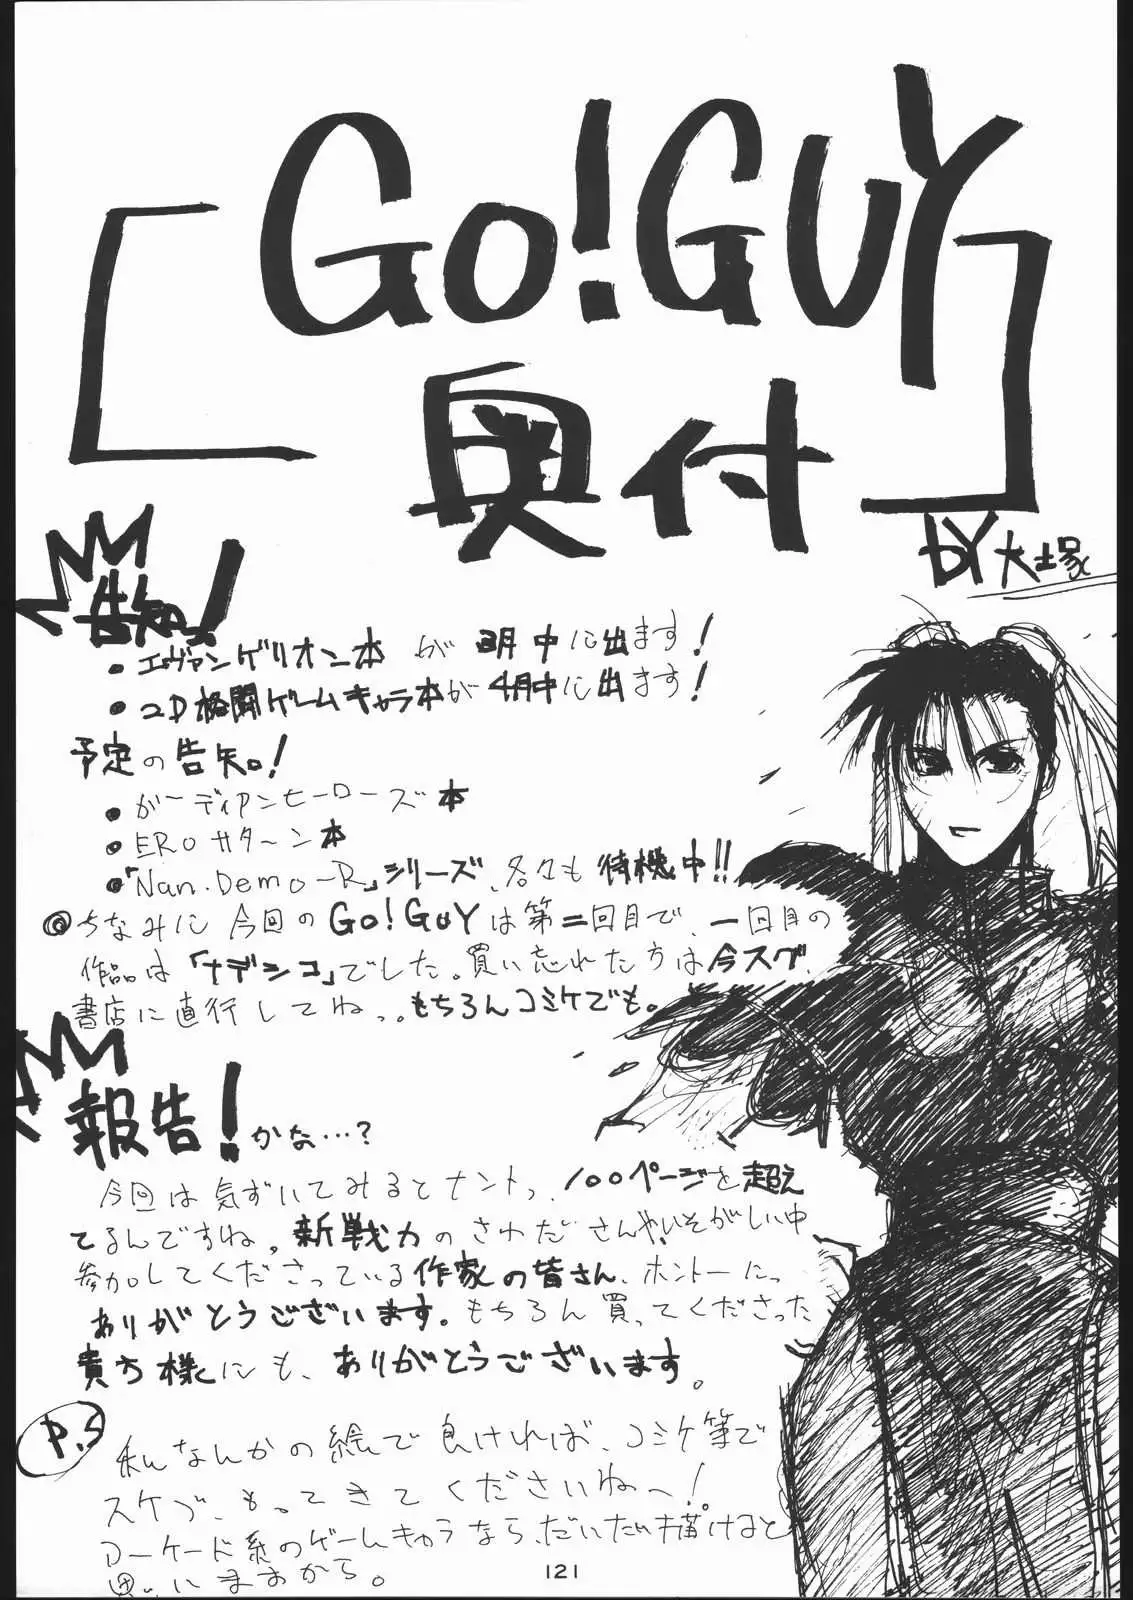 Go!GUY
奥付
by大塚
告知!
・エヴァンゲリオン本が3月中に出ます!
・2D格闘ゲームキャラ本が4月中に出ます!
予定の告知!
・ガーディアンヒーローズ本
・EROサターン本
・「Nan.Demo-R」シリーズ、各々も待機中!!
◎ちなみに今回のGo!GUYは第二回目で、一回目の
作品は「ナデシコ」でした。買い忘れた方は今スグ、
書店に直行してねっ。もちろんコミケでも。
報告!かな…?
今回は気ずいてみるとナントっ、100ページを超え
てるんですね。新戦力のさわださんやいそがしい中
参加してくださっている作家の皆さん、ホントーにっ
ありがとうございます。もちろん買ってくださった
貴方様にも、ありがとうございます。
P.S
私なんかの絵で良ければ、コミケ等で
スケブ、もってきてくださいね〜!
アーケード系のゲームキャラなら、だいたい描けると
思いますから。
121